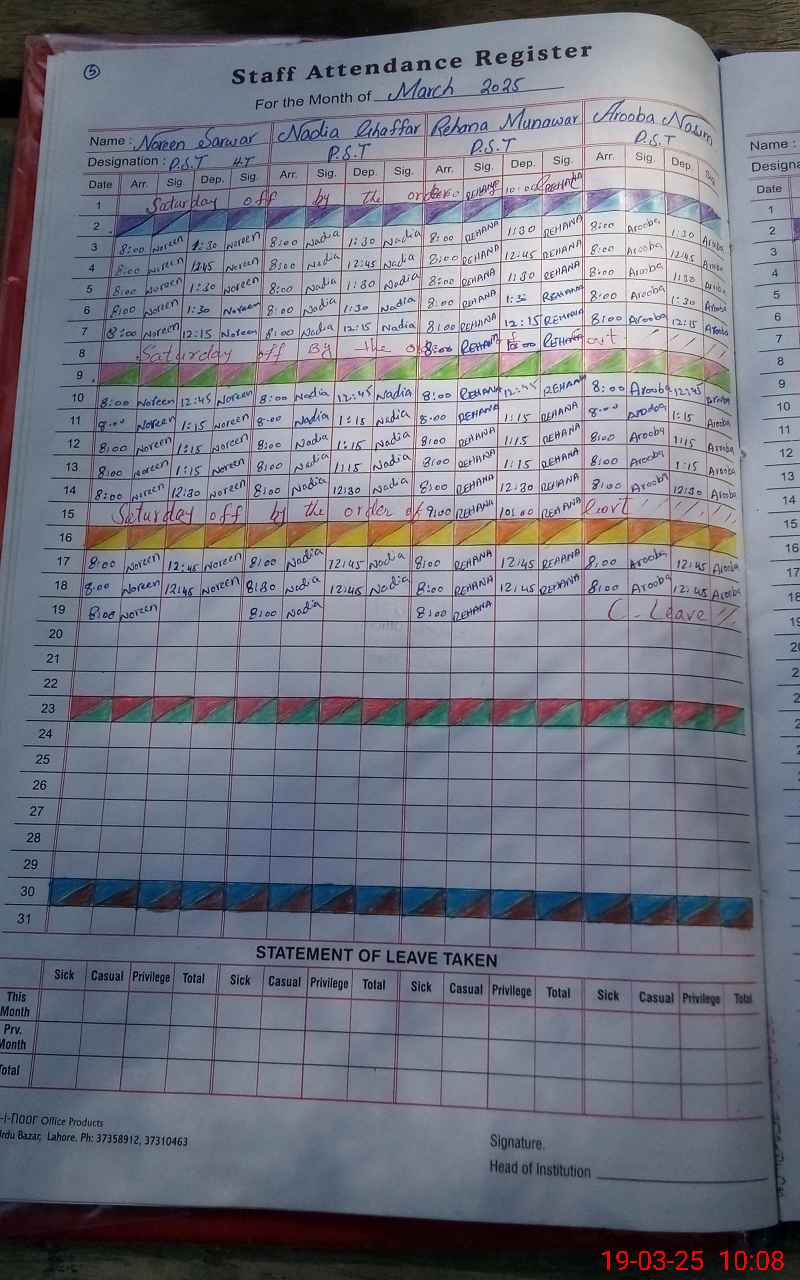 5
Staff Attendance Register
For the Month of March 2025
Name : Noreen Sarwar Nadia Ghaffar Rehana Munawar Arooba Nasim
Designation : P.S.T H.T P.S.T P.S.T P.S.T
Date Arr. Sig. Dep. Sig. Arr. Sig. Dep. Sig. Arr. Sig. Dep. Sig. Arr. Sig. Dep. Sig.
1 Saturday off by the order REHANA 10:00 REHANA
2
3 8:00 Noreen 1:30 Noreen 8:00 Nadia 1:30 Nadia 8:00 REHANA 1:30 REHANA 8:00 Arooba 1:30 Arooba
4 8:00 Noreen 12:45 Noreen 8:00 Nadia 12:45 Nadia 8:00 REHANA 12:45 REHANA 8:00 Arooba 12:45 Arooba
5 8:00 Noreen 1:30 Noreen 8:00 Nadia 1:30 Nadia 8:00 REHANA 1:30 REHANA 8:00 Arooba 1:30 Arooba
6 8:00 Noreen 1:30 Noreen 8:00 Nadia 1:30 Nadia 8:00 REHANA 1:3 REHANA 8:00 Arooba 1:30 Arooba
7 8:00 Noreen 12:15 Noreen 8:00 Nadia 12:15 Nadia 8:00 REHANA 12:15 REHANA 8:00 Arooba 12:15 Arooba
8 Saturday off By the 8:00 REHANA REHANA
9
10 8:00 Noreen 12:45 Noreen 8:00 Nadia 12:45 Nadia 8:00 REHANA 12:45 REHANA 8:00 Arooba 12:45 Arooba
11 8:00 Noreen 1:15 Noreen 8:00 Nadia 1:15 Nadia 8:00 REHANA 1:15 REHANA 8:00 Arooba 1:15 Arooba
12 8:00 Noreen 1:15 Noreen 8:00 Nadia 1:15 Nadia 8:00 REHANA 1:15 REHANA 8:00 Arooba 1:15 Arooba
13 8:00 Noreen 1:15 Noreen 8:00 Nadia 1:15 Nadia 8:00 REHANA 1:15 REHANA 8:00 Arooba 1:15 Arooba
14 8:00 Noreen 12:30 Noreen 8:00 Nadia 12:30 Nadia 8:00 REHANA 12:30 REHANA 8:00 Arooba 12:30 Arooba
15 Saturday off by the order of 8:00 REHANA 10:00 REHANA Govt
16
17 8:00 Noreen 12:45 Noreen 8:00 Nadia 12:45 Nadia 8:00 REHANA 12:45 REHANA 8:00 Arooba 12:45 Arooba
18 8:00 Noreen 12:45 Noreen 8:30 Nadia 12:45 Nadia 8:00 REHANA 12:45 REHANA 8:00 Arooba 12:45 Arooba
19 8:00 Noreen 8:00 Nadia 8:00 REHANA C-Leave
20
21
22
23
24
25
26
27
28
29
30
31
STATEMENT OF LEAVE TAKEN
Sick Casual Privilege Total Sick Casual Privilege Total Sick Casual Privilege Total Sick Casual Privilege Total
This Month
Prv. Month
Total
Office Products
Urdu Bazar, Lahore. Ph: 37358912, 37310463
Signature.
Head of Institution
Name :
Designa
Date
1
2
3
4
5
6
7
8
9
10
11
12
13
14
15
16
17
18
19-03-25 10:08